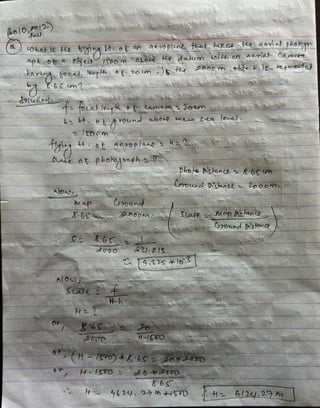 (2010, 2012)
fall
What is the flying ht. of an aeroplane that takes the aerial photogr
aph of a object 1500m above the datum with an aerial camera
having focal length of 20cm. if the 2000m object is represented
by 8.65 cm?
Solution:
f = focal length of camera = 20cm
h = ht. of ground above mean sea level.
= 1500m
flying ht. of aeroplane = H = ?
Scale of photograph = ?
Photo Distance = 8.65 cm
Ground Distance = 2000m.
Now,
Map Ground
8.65 cm 2000m
(Scale = Map Distance / Ground Distance)
∴ S = 8.65 / 2000 = 1 / 231.213
4.325 * 10⁻³
Now,
Scale = f / H-h
H = ?
or, 8.65 / 2000 = 20 / H-1500
or, (H - 1500) * 8.65 = 20 * 2000
or, H - 1500 = 20 * 2000 / 8.65
∴ H = 4624.27m + 1500
∴ H = 6124.27m